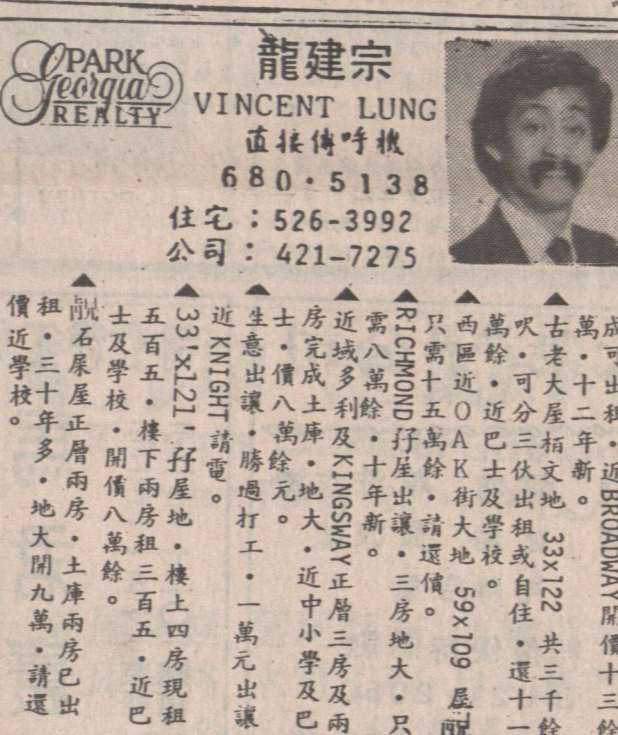 PARK
Georgia
REALTY
龍建宗
VINCENT LUNG
直接傳呼機
680·5138
住宅：526-3992
公司：421-7275
成可出租·近BROADWAY開價十三餘
萬·十二年新。
▲古老大屋栢文地 33x122 共三千餘
呎·可分三伏出租或自住·還十一
萬餘·近巴士及學校。
▲西區近OAK街大地 59x109 屋靚
只需十五萬餘·請還價。
▲RICHMOND孖屋出讓·三房地大·只
需八萬餘·十年新。
▲近域多利及KINGSWAY正層三房及兩
房完成土庫·地大·近中小學及巴
士·價八萬餘元。
▲生意出讓·勝過打工·一萬元出讓
近KNIGHT請電。
▲33'x121'孖屋地·樓上四房現租
五百五·樓下兩房租三百五·近巴
士及學校·開價八萬餘。
▲靚石屎屋正層兩房·土庫兩房已出
租·三十年多·地大開九萬·請還
價近學校。